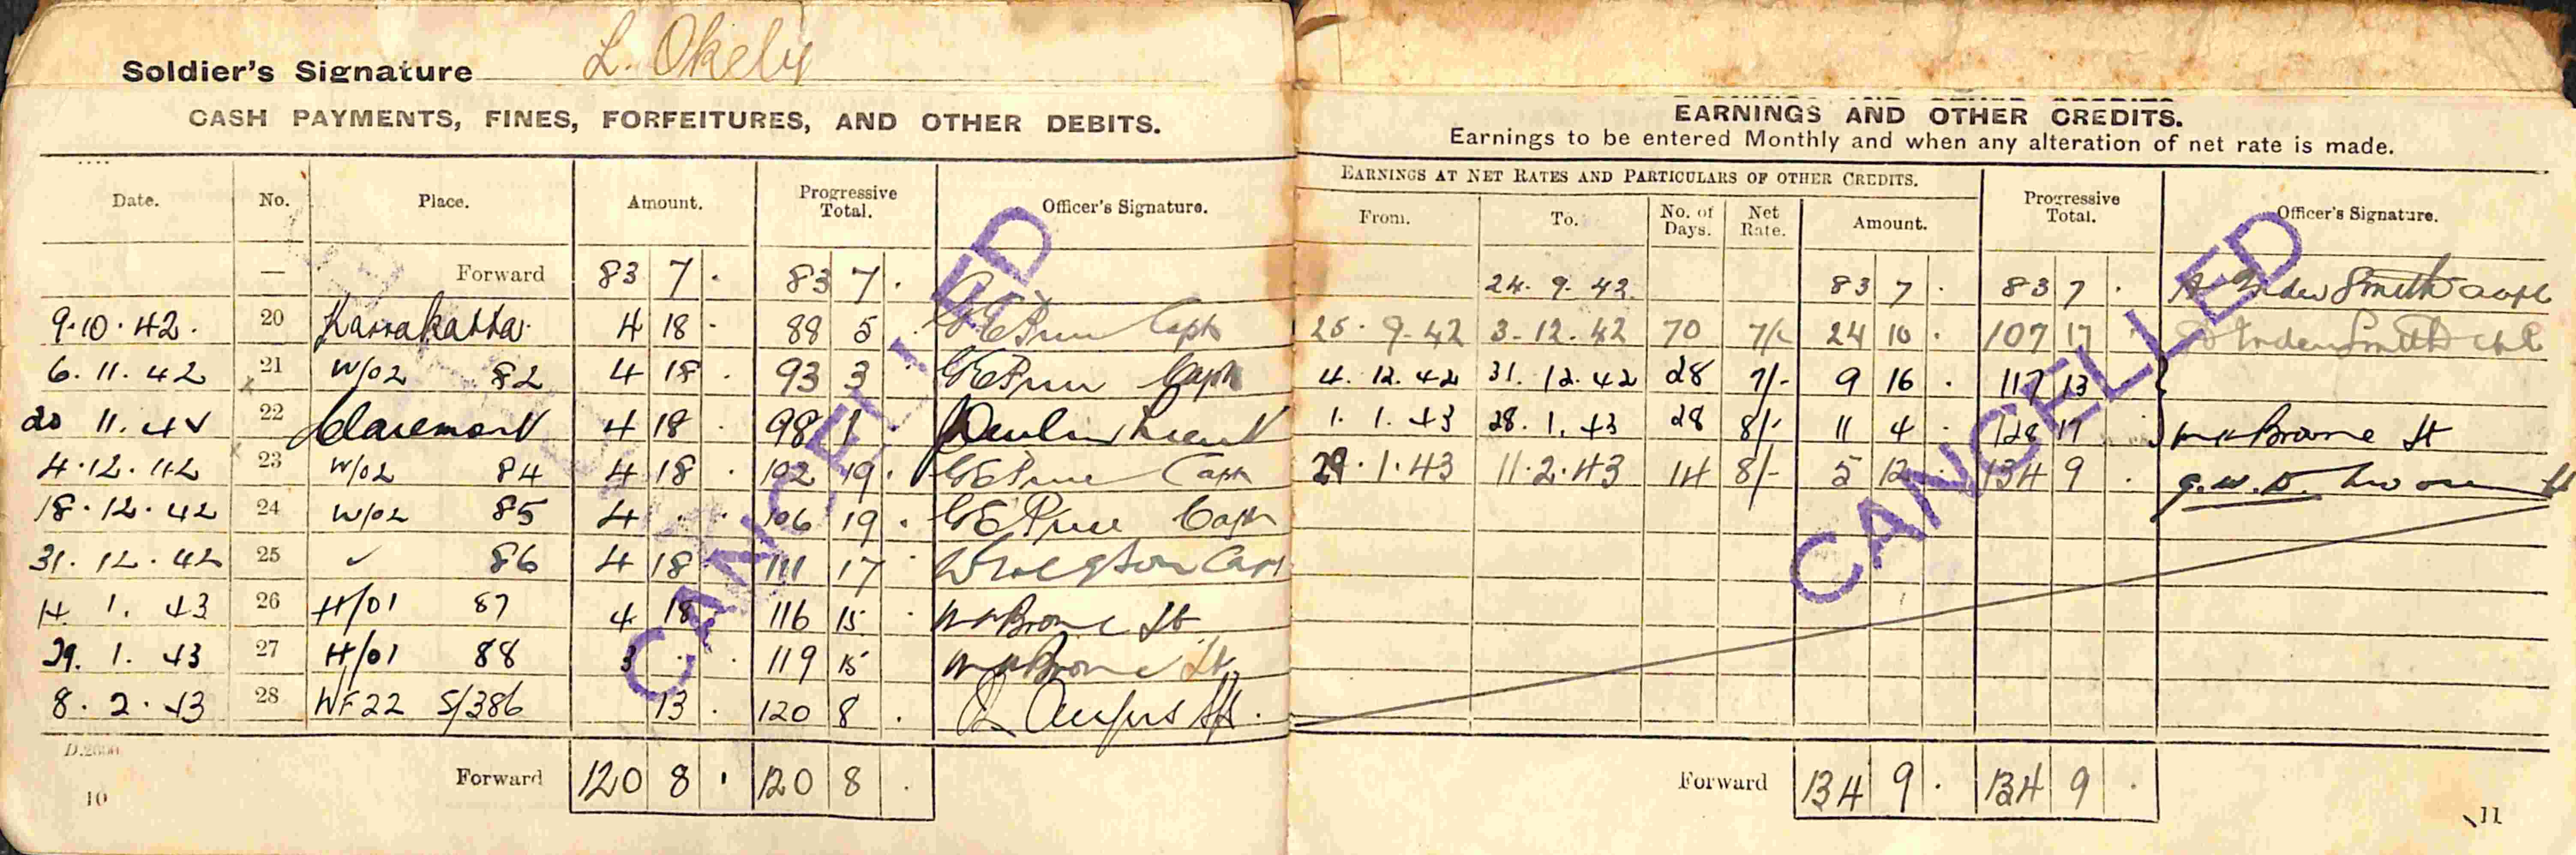 Soldier's Signature L. Okely
CASH PAYMENTS, FINES, FORFEITURES, AND OTHER DEBITS.
Date. No. Place. Amount. Progressive Total. Officer's Signature.
— Forward 83 7 · 83 7 ·
9·10·42· 20 Karrakatta· 4 18 · 88 5 Capt
6.11.42 21 W/02 82 4 18 · 93 3 Capt
20 11.42 22 Claremont 4 18 · 98 1 Lieut
4·12·42 23 W/02 84 4 18 · 102 19 · Capt
18·12·42 24 W/02 85 4 · · 106 19 · Capt
31.12.42 25 86 4 18 111 17 Capt
14 1. 43 26 H/01 87 4 18 116 15 · Browne Lt
29. 1. 43 27 H/01 88 3 · · 119 15 Browne Lt
8·2·43 28 WF22 S/386 13 · 120 8 ·
Forward 120 8 · 120 8 ·
10
CANCELLED
EARNINGS AND OTHER CREDITS.
Earnings to be entered Monthly and when any alteration of net rate is made.
EARNINGS AT NET RATES AND PARTICULARS OF OTHER CREDITS. Progressive Total. Officer's Signature.
From. To. No. of Days. Net Rate. Amount.
24. 9. 42 83 7 · 83 7 · Smith
25· 9·42 3·12·42 70 7/- 24 10 · 107 17 Smith
4. 12. 42 31. 12. 42 28 7/- 9 16 · 117 13
1. 1. 43 28. 1. 43 28 8/- 11 4 · 128 17 Browne Lt
29·1·43 11·2·43 14 8/- 5 12 · 134 9 ·
Forward 134 9 · 134 9 ·
11
CANCELLED